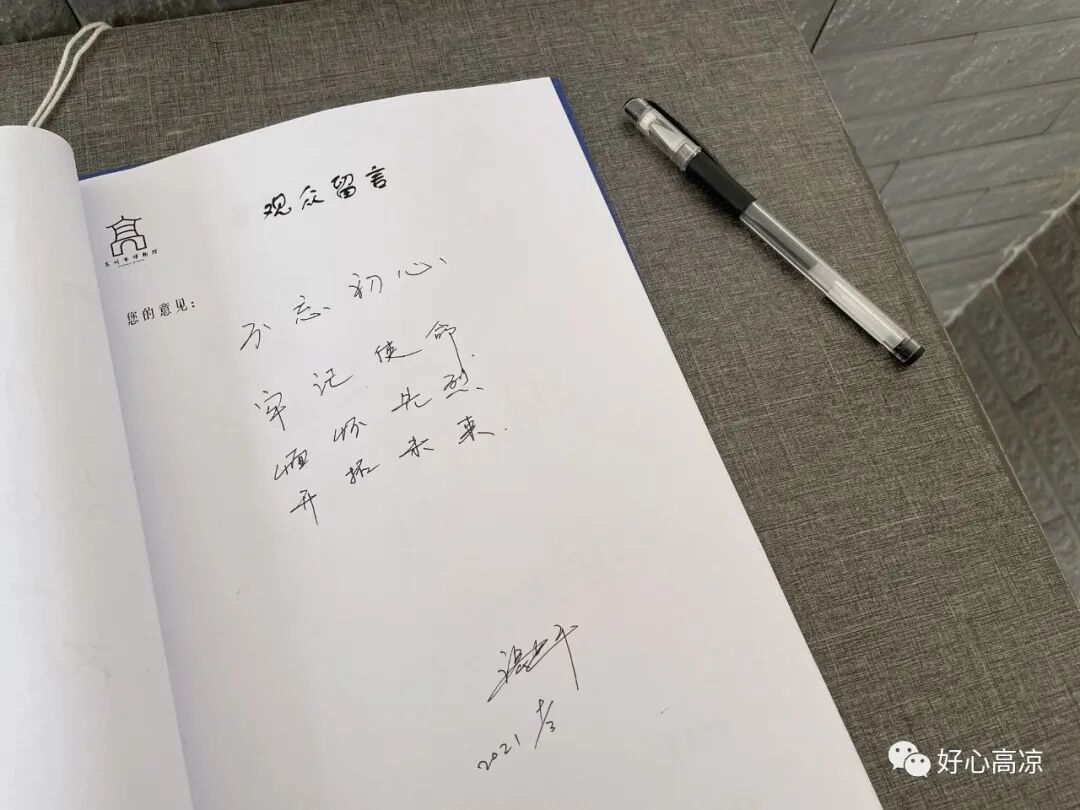 观众留言
高州市博物馆
您的意见：
不忘初心、
牢记使命、
缅怀先烈、
开拓未来.
2021
好心高凉